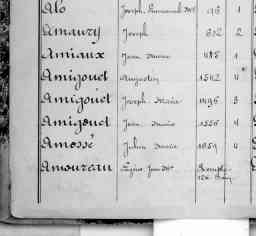 Alo Joseph 96 1
Amaury Joseph 632 2
Amiaux Jean Marie 1
Amigouet Augustin 1542 4
Amigouet Joseph Marie 1496 3
Amigouet Jean Marie 1556 4
Amossé Julien Marie 1659 4
Amoureau Eugène Jean